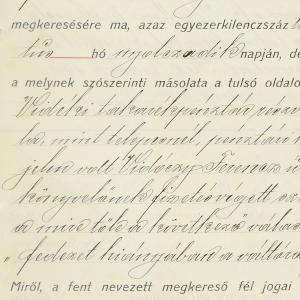 megkeresésére ma, azaz egyezerkilenczszáz
hó nyolczadik napján, de
a melynek szószerinti másolata a tulsó oldalo
Vidéki takarékpénztár részv
la, mint telepesnél, pénztári
jelen volt Vidóczy Ferencz
könyvelőnek fizetés végett
a mire tőle a következő vála
„fedezet hiányában a váltóra
Miről, a fent nevezett megkereső fél jogai